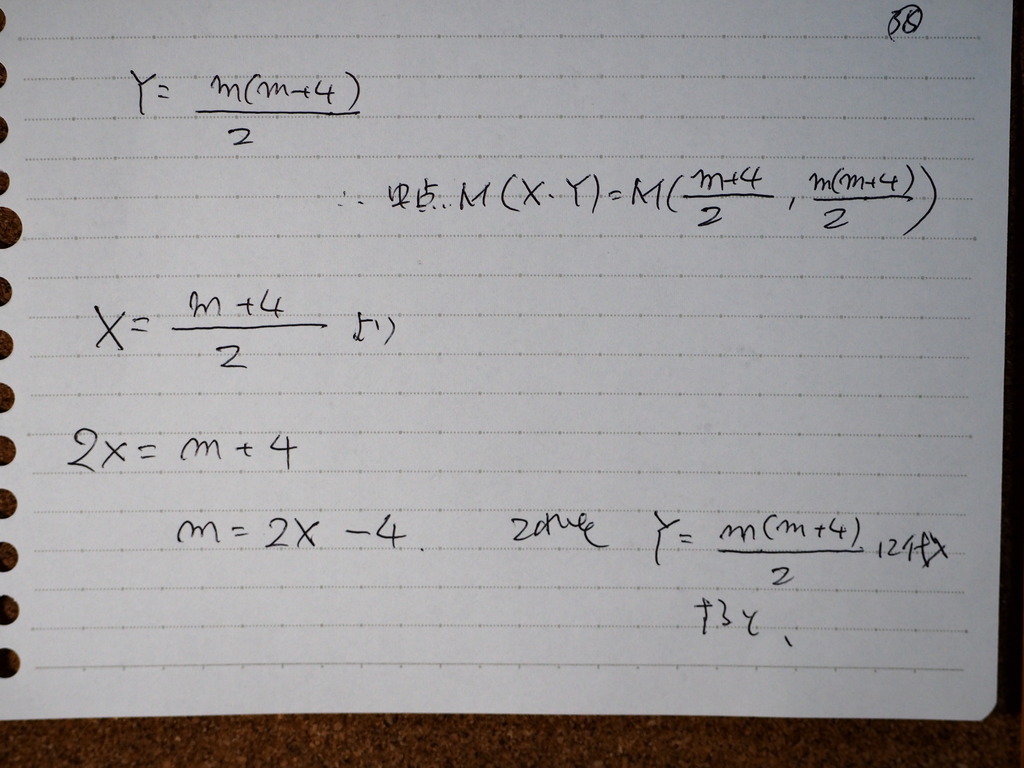 38
Y = m(m+4)/2
∴ 中点 M(X・Y) = M(m+4/2 , m(m+4)/2)
X = m+4/2 より
2x = m + 4
m = 2X − 4. この時を Y = m(m+4)/2 に代入
すると、